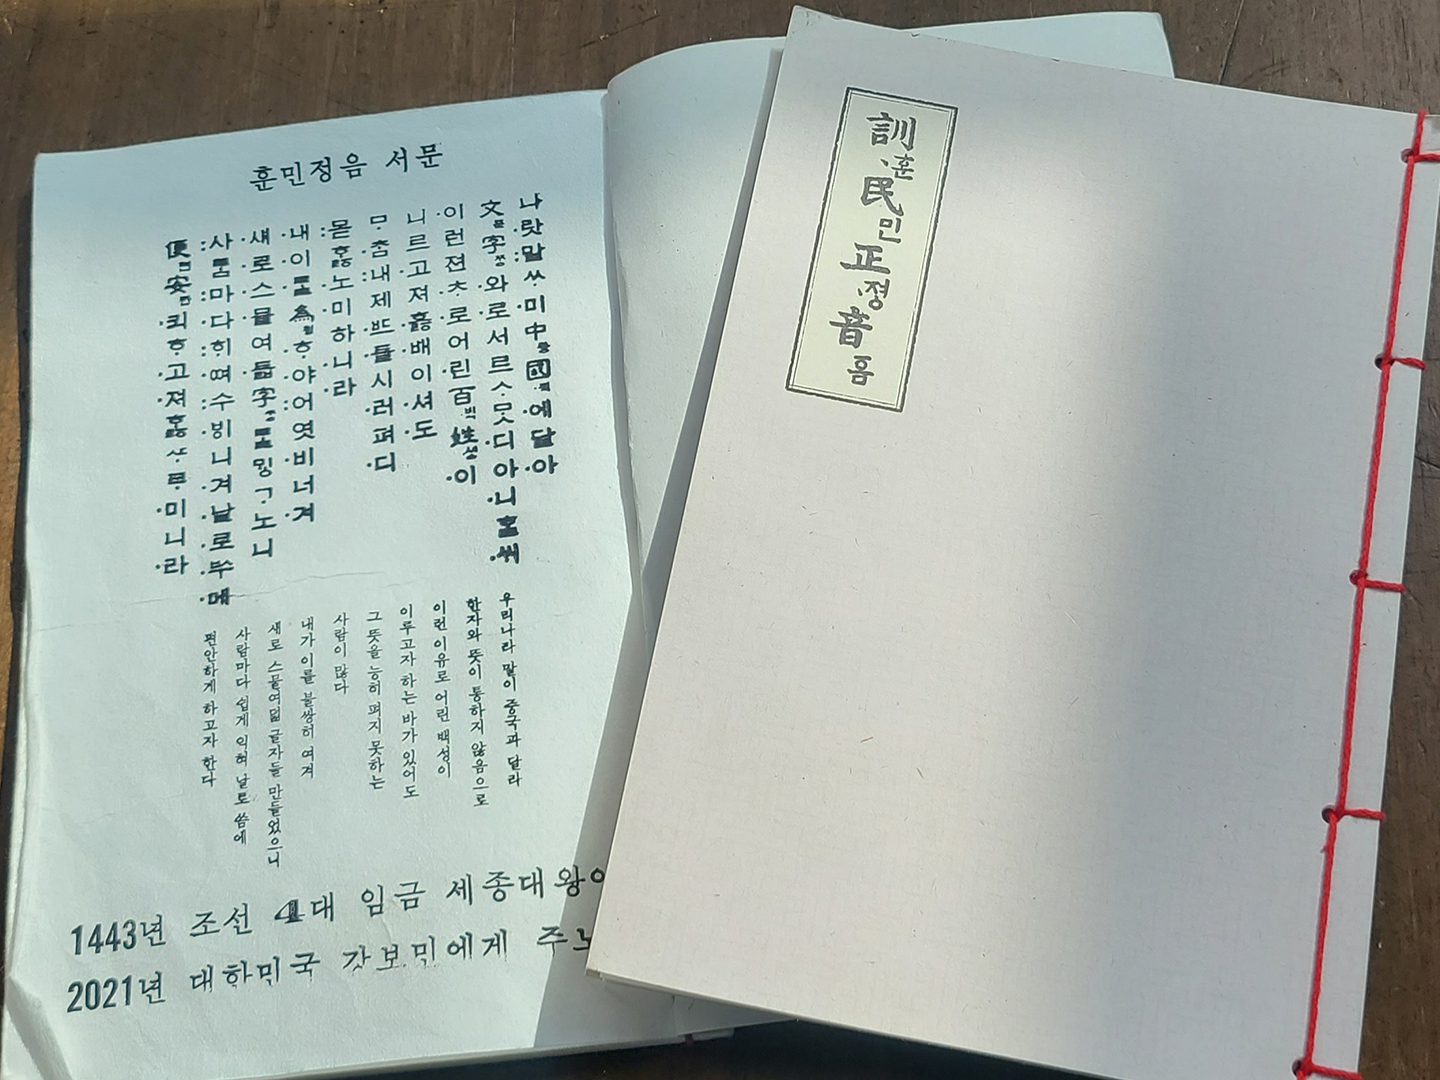 훈민정음 서문
나·랏:말ᄊᆞ·미中듕國귁·에달·아
文문字ᄍᆞᆼ·와·로서르ᄉᆞᄆᆞᆺ·디아·니ᄒᆞᆯ·ᄊᆡ
·이런젼·ᄎᆞ·로어·린百·ᄇᆡᆨ姓·셩·이
니르·고·져·호ᇙ·배이·셔·도
ᄆᆞ·ᄎᆞᆷ:내제·ᄠᅳ·들시·러펴·디
:몯ᄒᆞᇙ·노·미하·니·라
·내·이·ᄅᆞᆯ爲·윙·ᄒᆞ·야:어엿·비너·겨
·새·로·스·믈여·듧字·ᄍᆞᆼ·ᄅᆞᆯᄆᆡᇰ·ᄀᆞ노·니
:사ᄅᆞᆷ:마·다:ᄒᆡ·ᅇᅧ:수·ᄫᅵ니·겨·날·로·ᄡᅮ·메
便뼌安ᅙᅡᆫ·킈ᄒᆞ·고·져ᄒᆞᇙᄯᆞᄅᆞ·미니·라
우리나라 말이 중국과 달라
한자와 뜻이 통하지 않음으로
이런 이유로 어린 백성이
이루고자 하는 바가 있어도
그 뜻을 능히 펴지 못하는
사람이 많다
내가 이를 불쌍히 여겨
새로 스물여덟 글자들 만들었으니
사람마다 쉽게 익혀 날로 씀에
편안하게 하고자 한다
1443년 조선 4대 임금 세종대왕
2021년 대한민국 갓보민에게
訓·훈民민正·졍音ᅙᅳᆷ